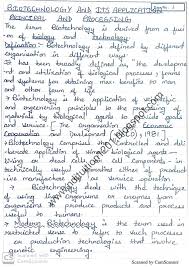 BIOTECHNOLOGY AND ITS APPLICATION
PRINCIPAL AND PROCESSING
The term Biotechnology is derived from a fusion
of biology and Technology
Defination:- Biotechnology is defined by different
Organisation in different ways
It has been broadly defined as "the development
and utilization of biological process, forms
and systems for obtaining max- benefits to man
and other forms of life
→ Biotechnology is the application of scientific
and engineering principles to the processing of
materials by biological agents to provide goods
and service (The Organisation for Economic
Cooperation and Development (OECD) 1981)
→ Biotechnology comprises controlled and deliberate
application of simple biological agents-
living or dead cells or cell components- in
technically useful operation either of productive
manufacture or as service operation.
→ Biotechnology deals with the technique
of using live organisms or enzymes from
organisms to produce products and process
useful to humans
→ Modern Biotechnology is the term used in
restricted sense to refer to such process
or production technologies that involve
genetic engineering.
Scanned by CamScanner